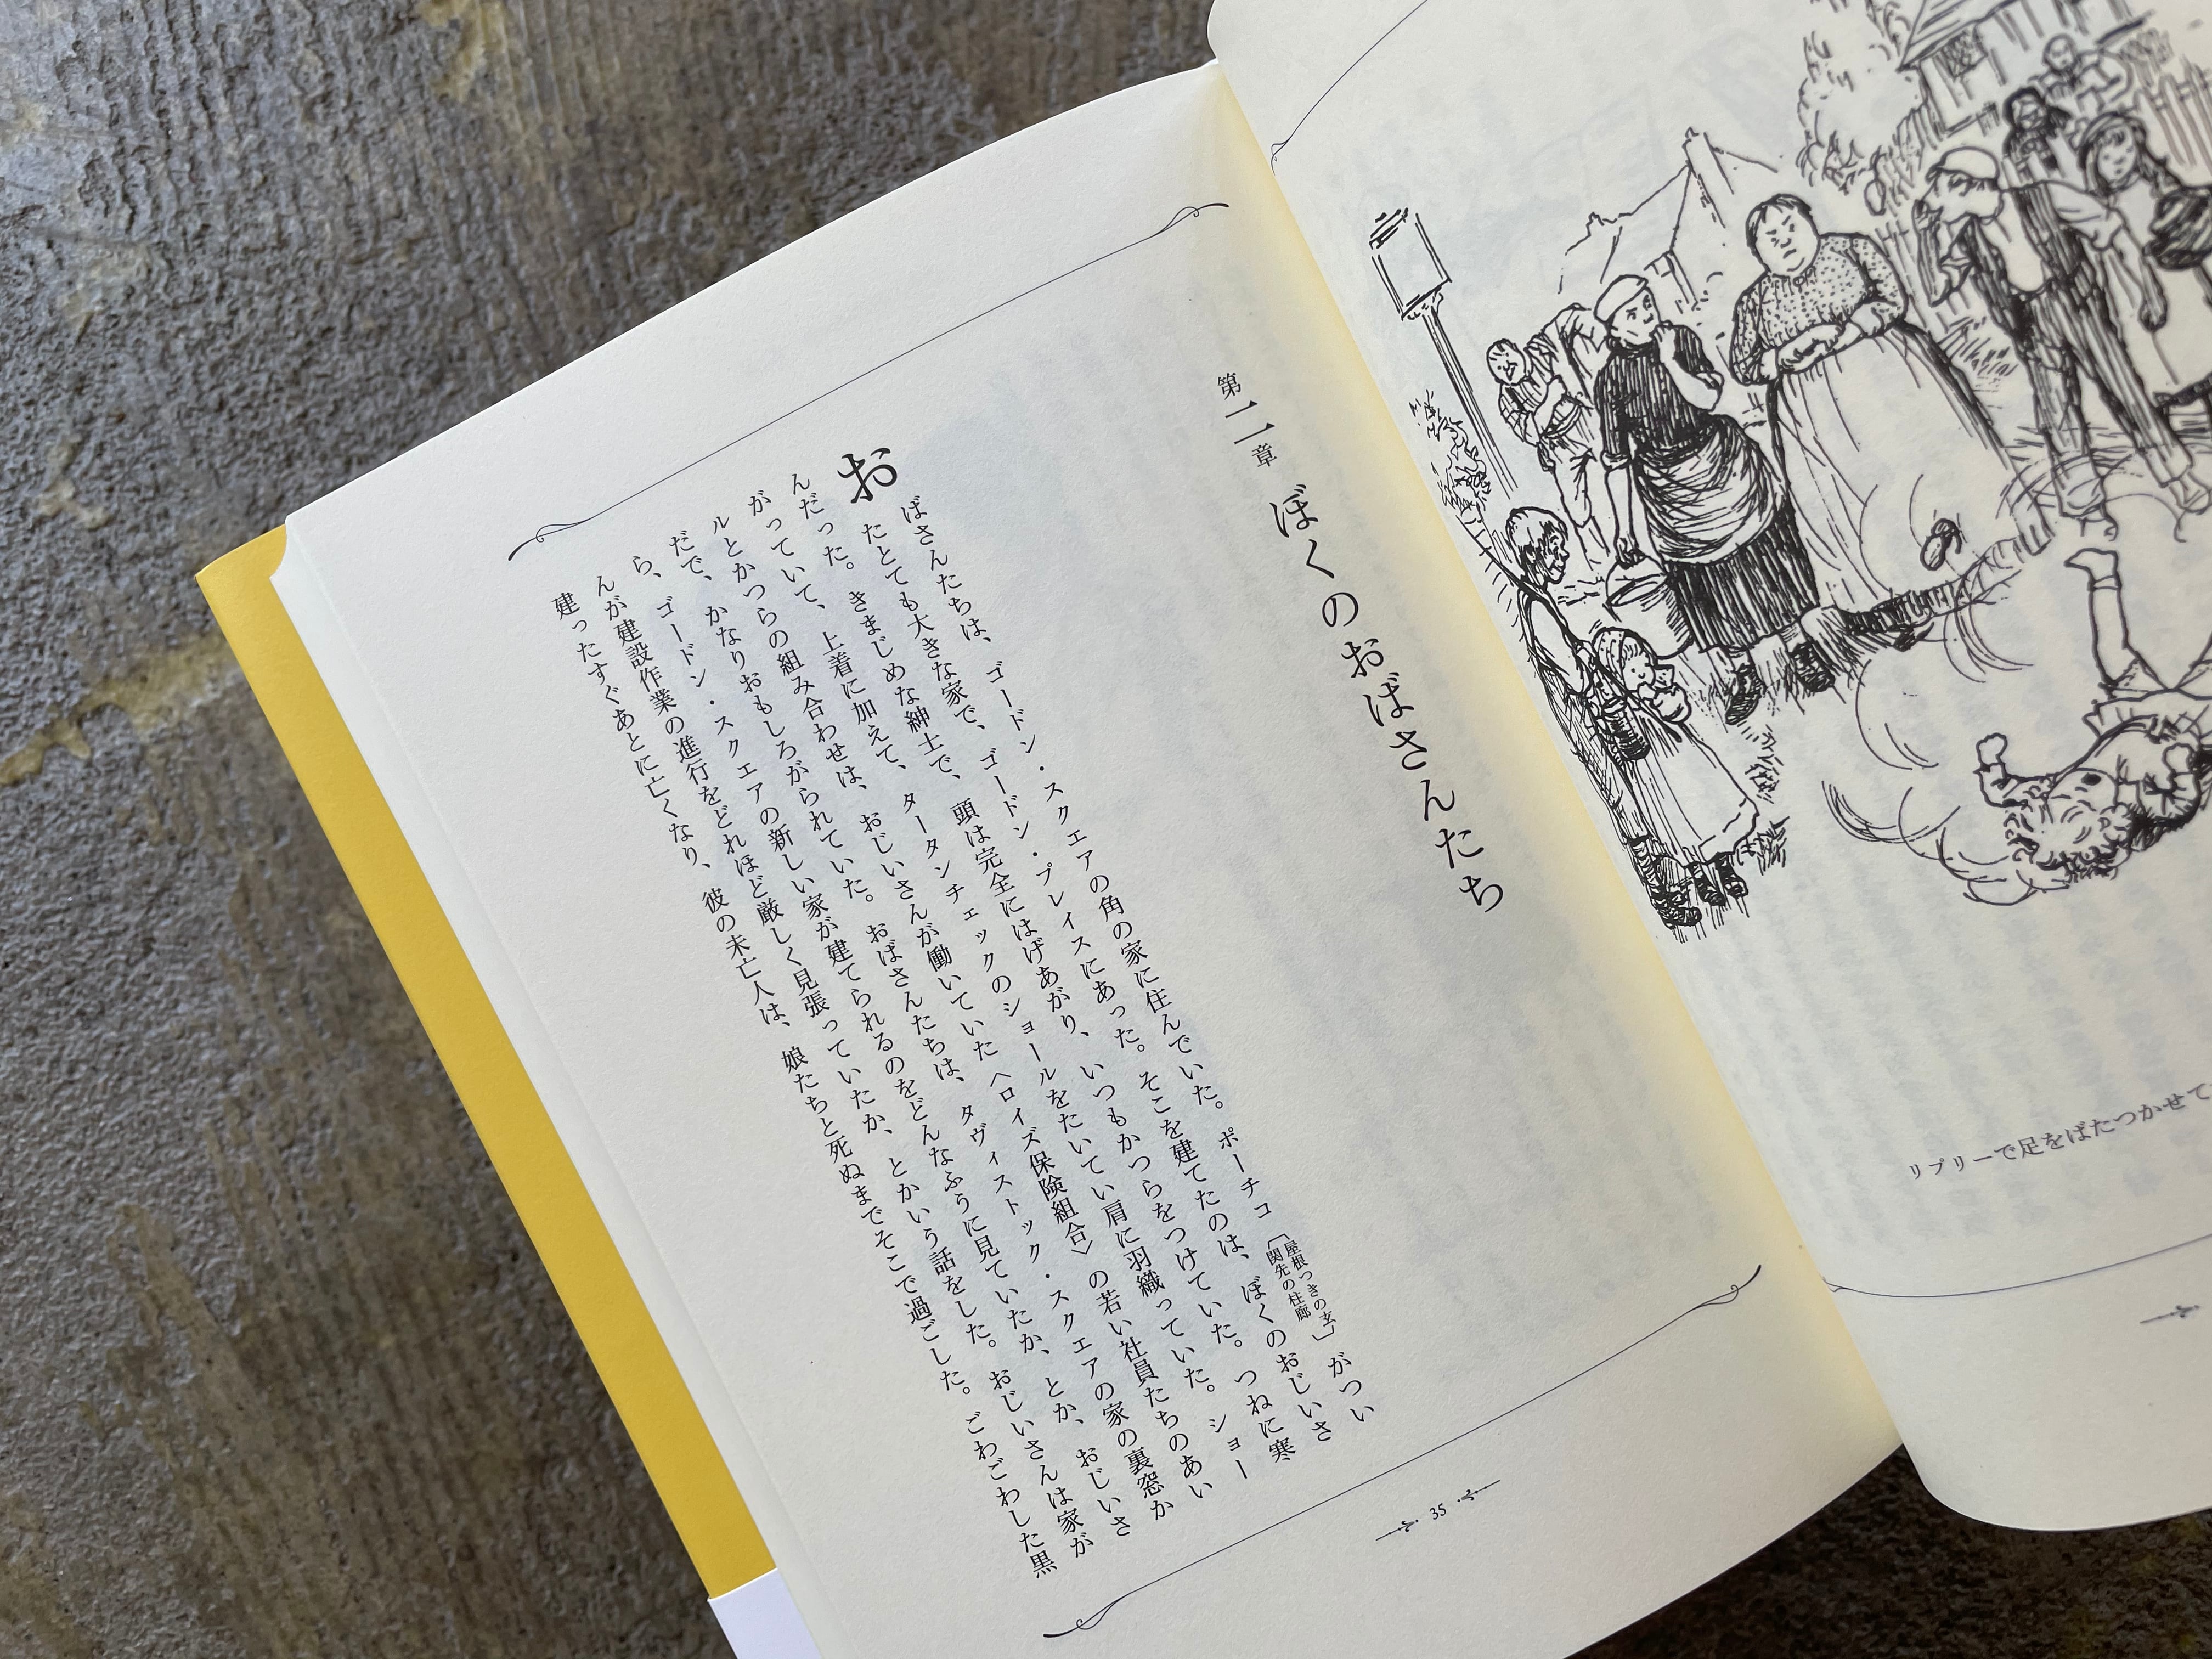 リプリーで足をばたつかせて
第二章 ぼくのおばさんたち
おばさんたちは、ゴードン・スクエアの角の家に住んでいた。ポーチコ〔屋根つきの玄関先の柱廊〕がつい
たとても大きな家で、ゴードン・プレイスにあった。そこを建てたのは、ぼくのおじいさ
んだった。きまじめな紳士で、頭は完全にはげあがり、いつもかつらをつけていた。つねに寒
がっていて、上着に加えて、タータンチェックのショールをたいてい肩に羽織っていた。ショー
ルとかつらの組み合わせは、おじいさんが働いていた〈ロイズ保険組合〉の若い社員たちのあい
だで、かなりおもしろがられていた。おばさんたちは、タヴィストック・スクエアの家の裏窓か
ら、ゴードン・スクエアの新しい家が建てられるのをどんなふうに見ていたか、とか、おじいさ
んが建設作業の進行をどれほど厳しく見張っていたか、とかいう話をした。おじいさんは家が
建ったすぐあとに亡くなり、彼の未亡人は、娘たちと死ぬまでそこで過ごした。ごわごわした黒
35